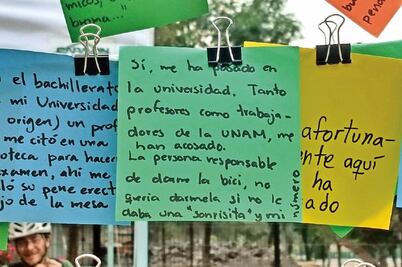 micos,
buena..."
pena
el bachillerato
mi Universidad
origen) un prof
me citó en una
oteca para hacer
examen, ahí me
ló su pene erect
jo de "la mesa
Sí, me ha pasado en
la universidad. Tanto
profesores como trabaja-
dores de la UNAM, me
han acosado.
La persona responsable
de darme la bici, no
quería darmela si no le
daba una "sonrisita" y mi
número
afortuna-
nte aquí
ha
ado